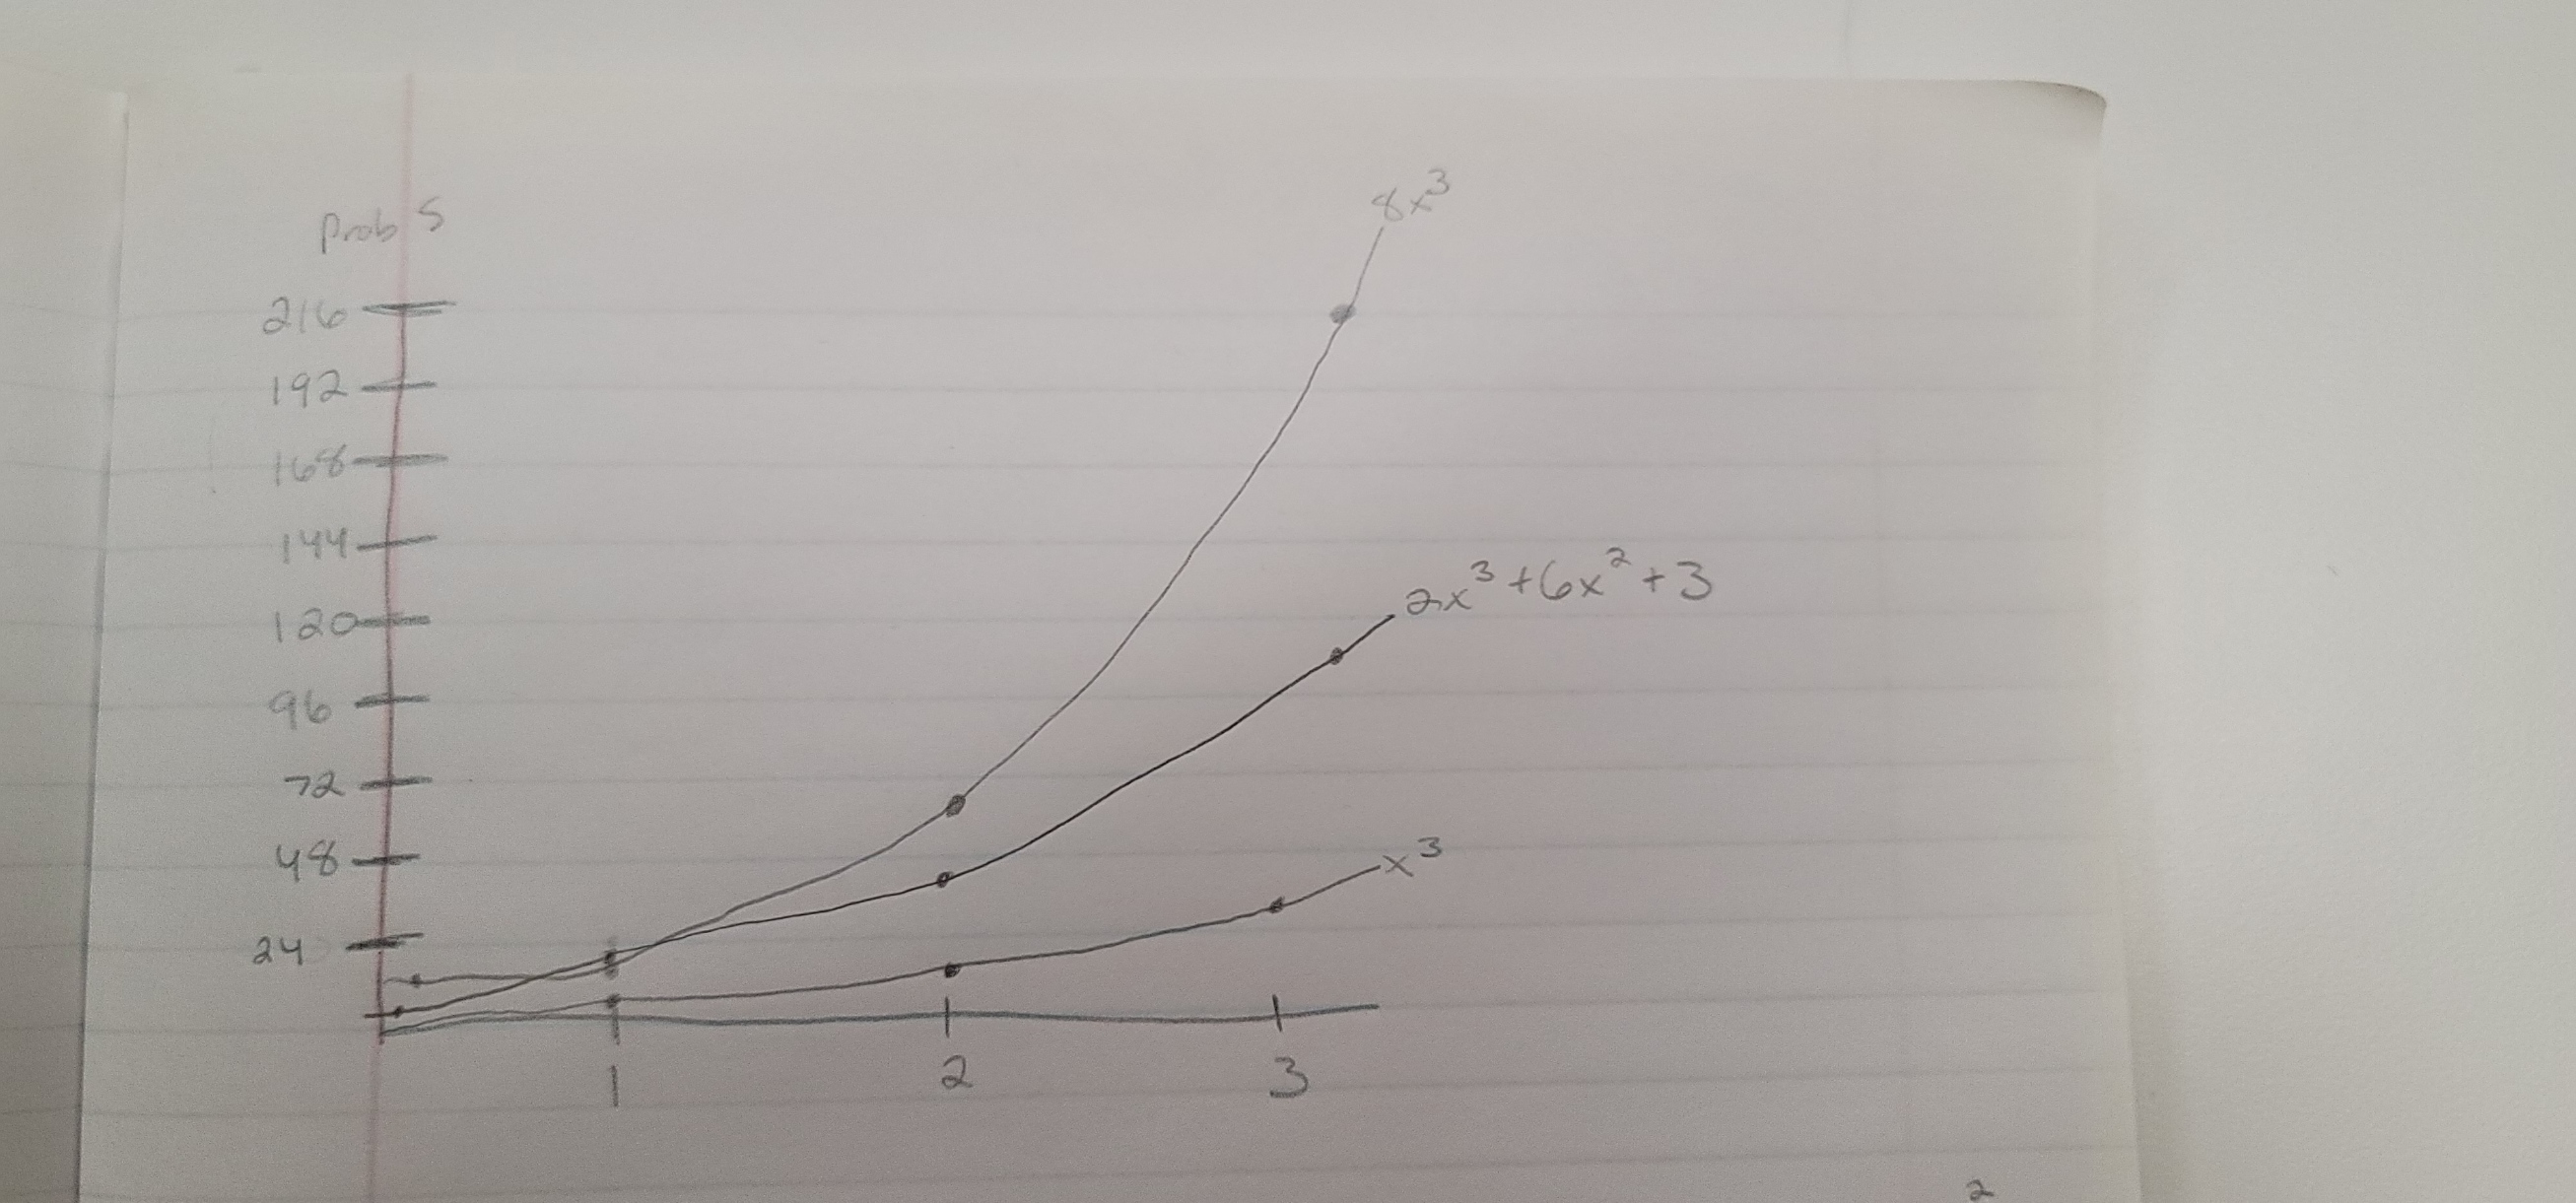 Prob 5
216
192
168
144
120
96
72
48
24
1
2
3
8x³
2x³+6x²+3
x³
2